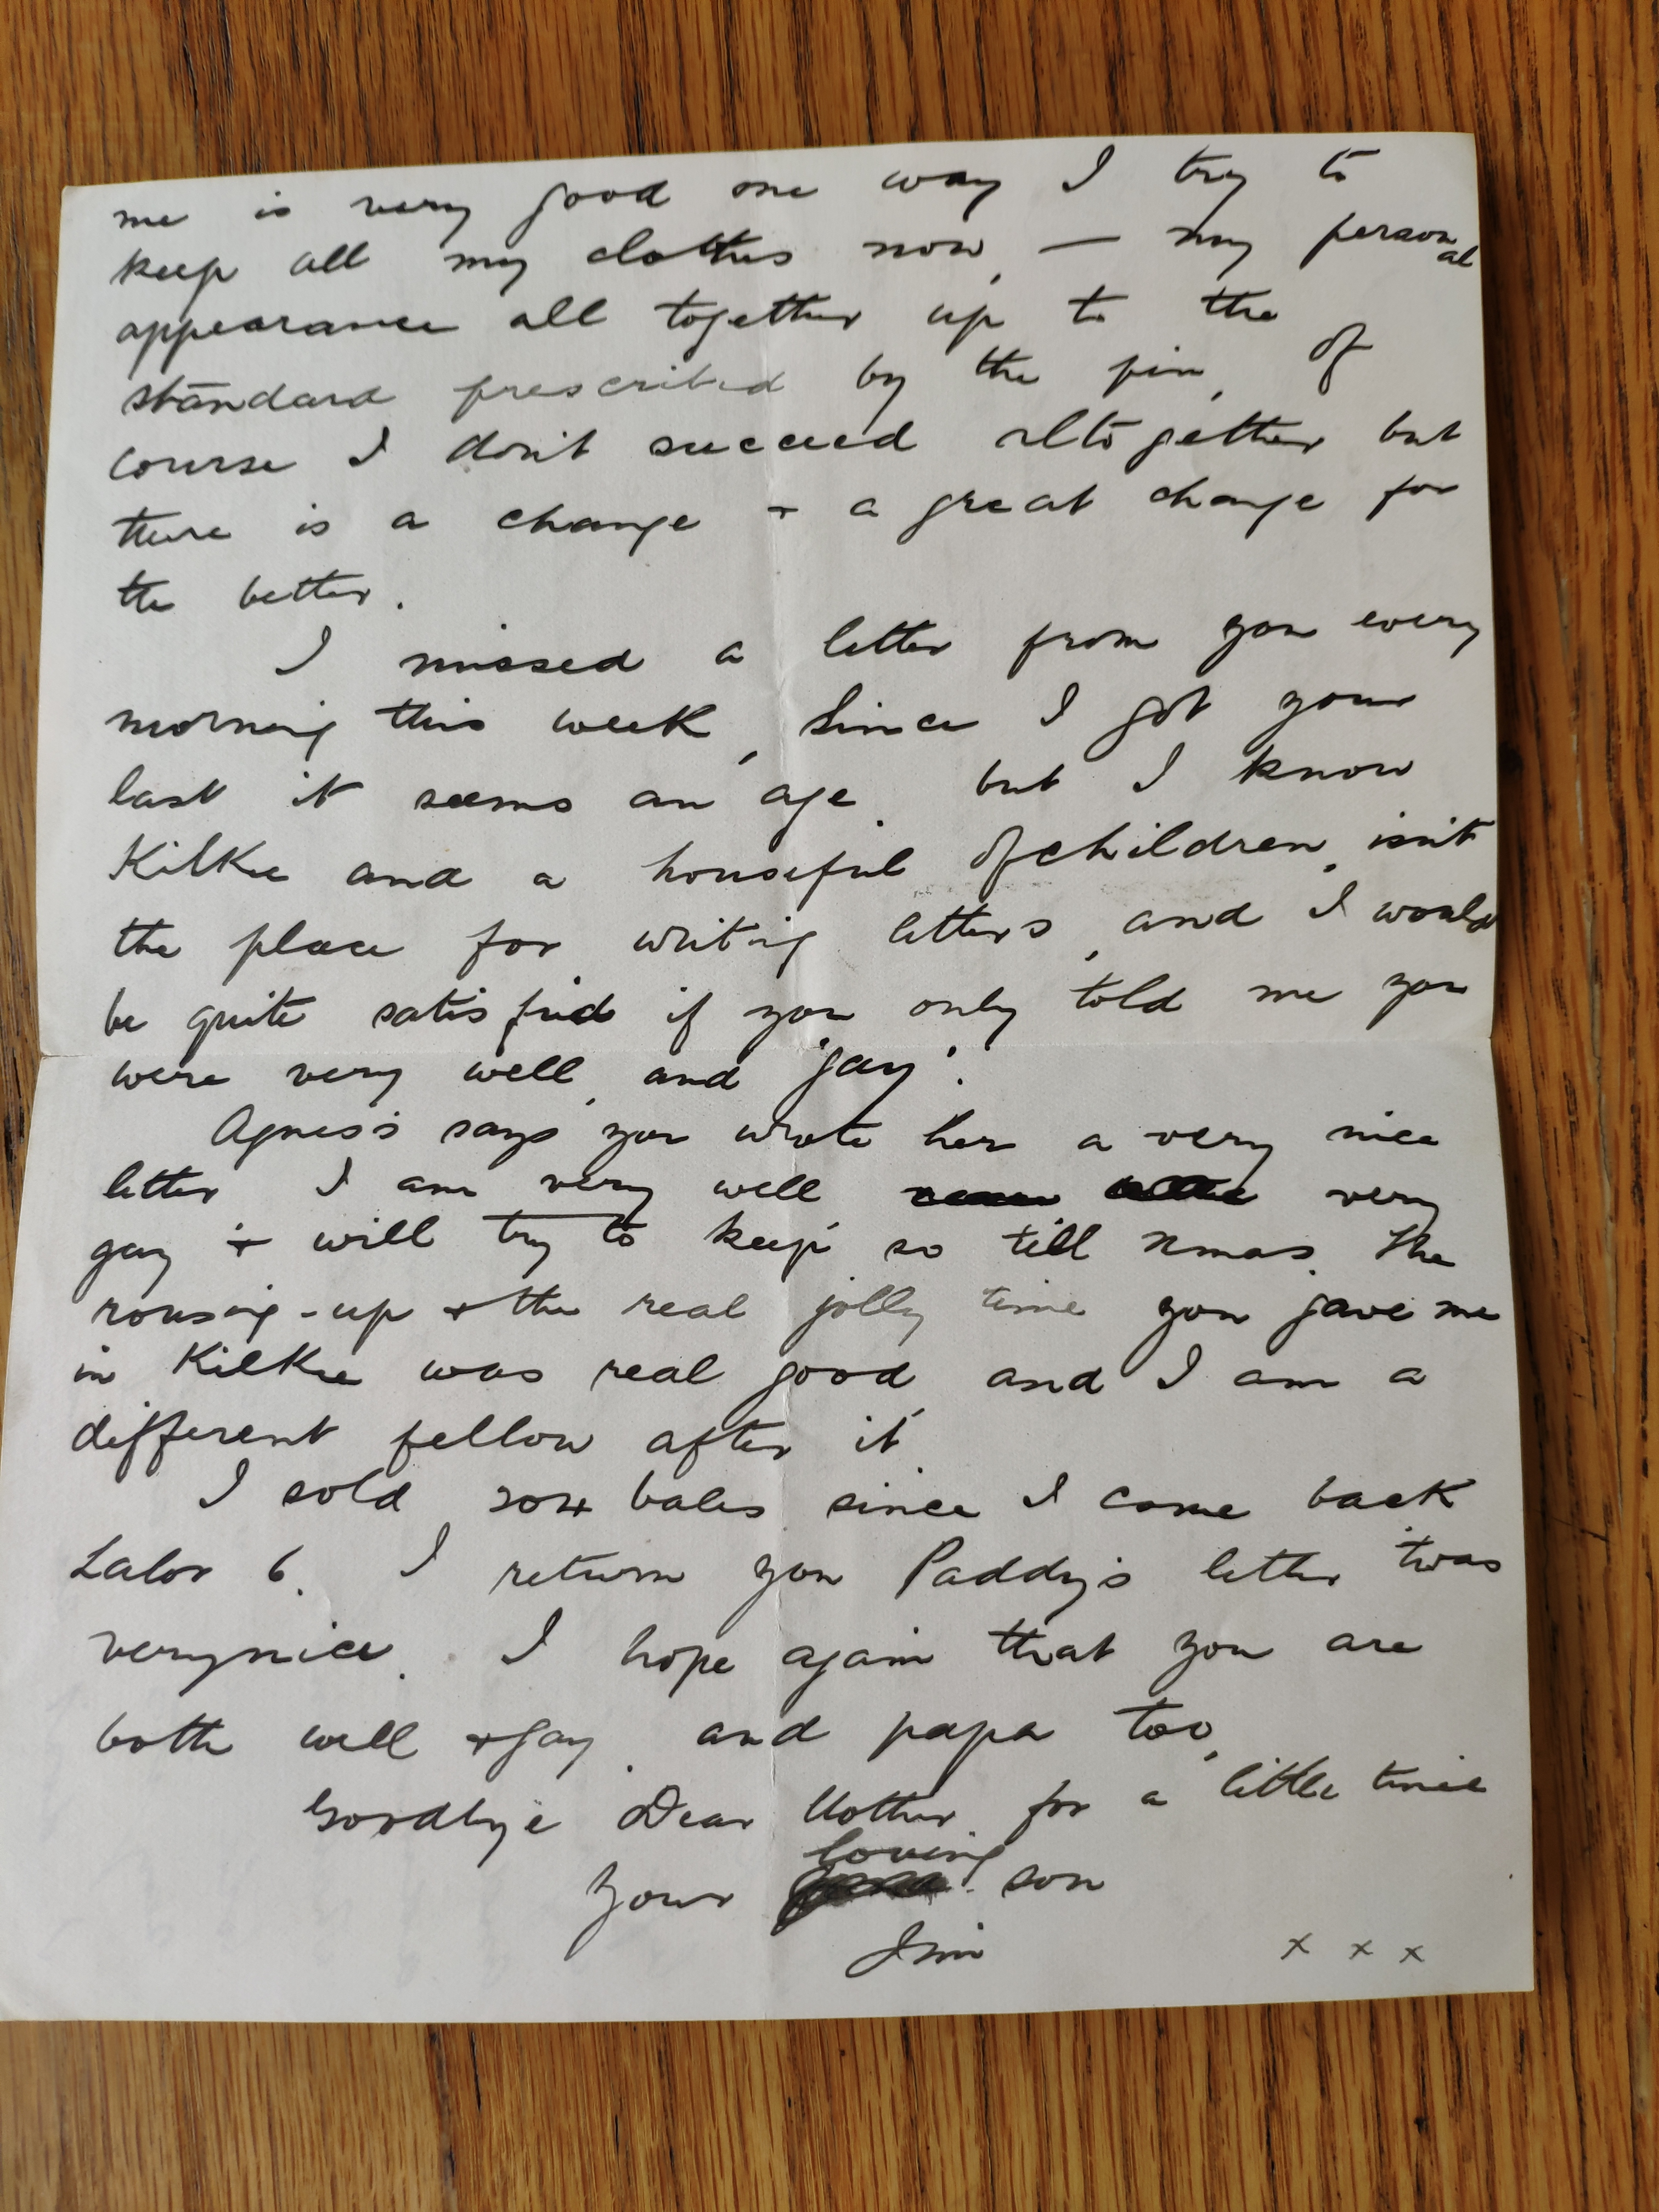 me is very good one way I try to
keep all my clothes now, — my personal
appearance all together up to the
standard prescribed by the pin, of
course I don't succeed altogether but
there is a change + a great change for
the better.
I missed a letter from you every
morning this week, since I got your
last it seems an age, but I know
Kilkee and a houseful of children, isn't
the place for writing letters, and I would
be quite satisfied if you only told me you
were very well, and 'gay'.
Agness says you wrote her a very nice
letter I am very well very
gay + will try to keep so till Xmas. The
rousing-up + the real jolly time you gave me
in Kilkee was real good, and I am a
different fellow after it.
I sold bales since I came back
Lalor 6. I return you Paddy's letter 'twas
very nice. I hope again that you are
both well + gay, and papa too,
Goodbye Dear Mother for a little time
Your loving son
Jim x x x